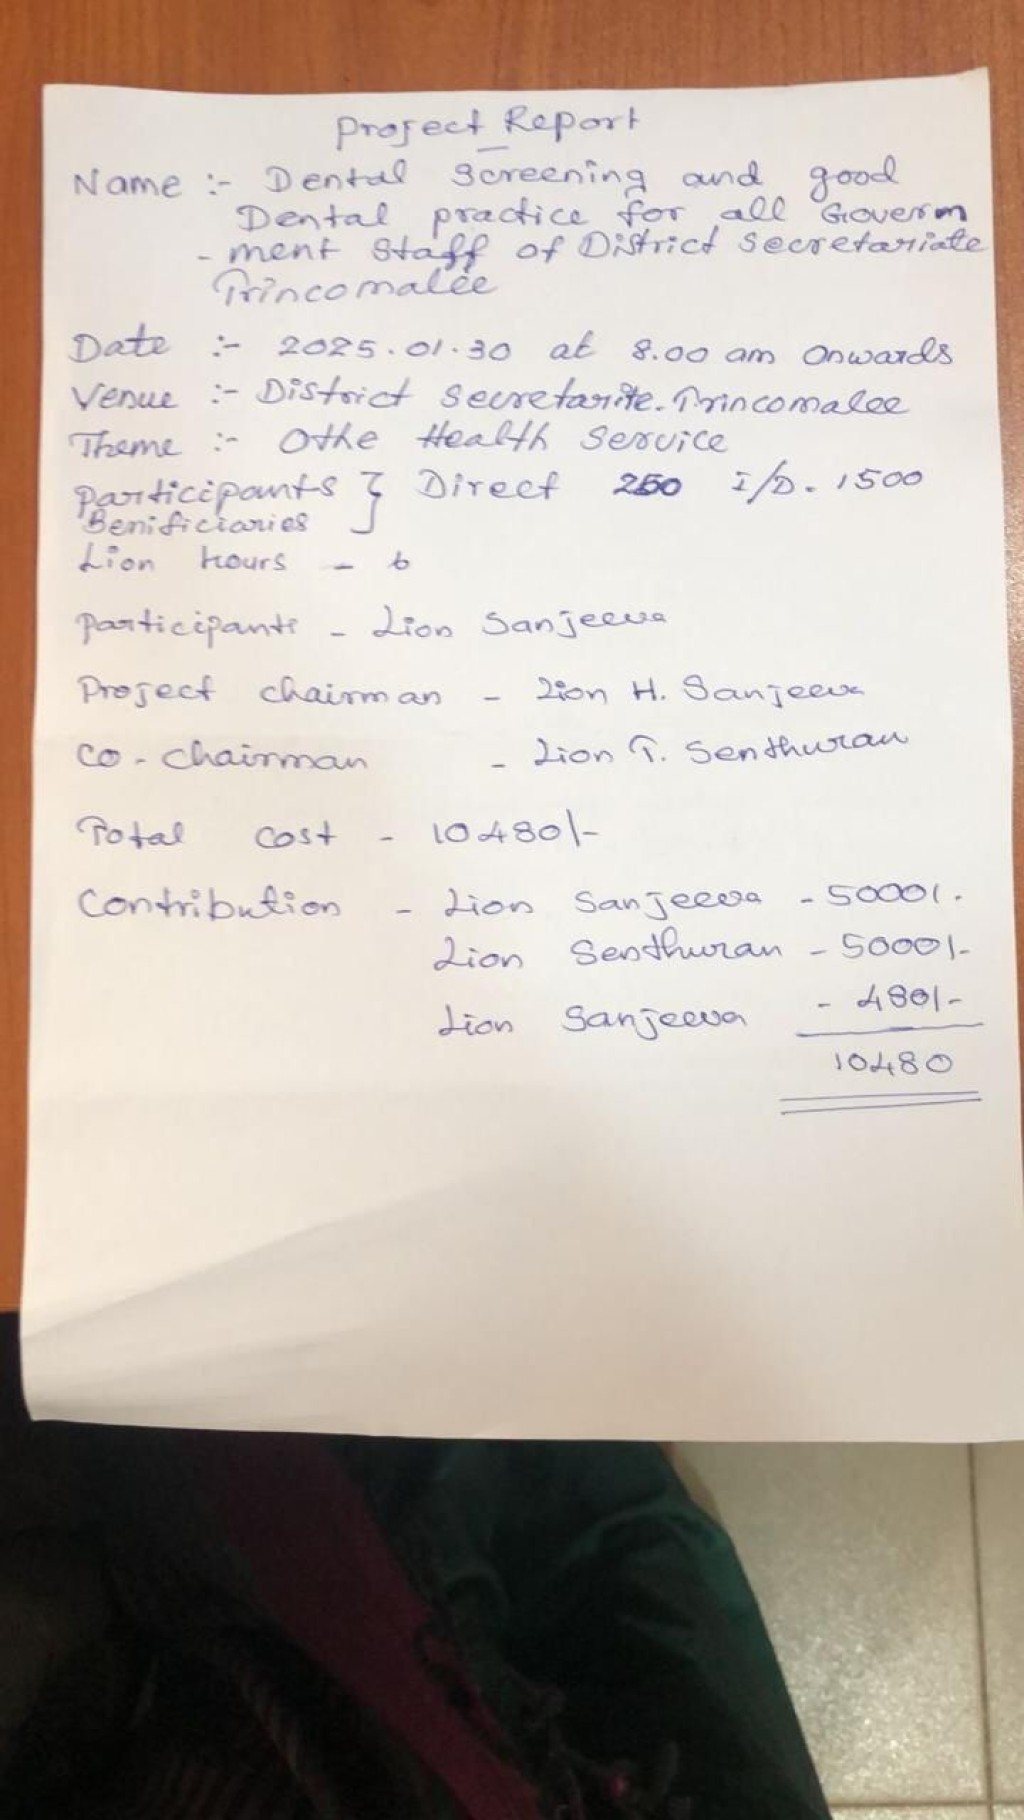 Project Report
Name :- Dental Screening and good
Dental practice for all Governm
- ment Staff of District Secretariate
Trincomalee
Date :- 2025.01.30 at 8.00 am onwards
Venue :- District Secretarite. Trincomalee
Theme :- Othe Health Service
Participants } Direct 250 I/D. 1500
Benificiaries
Lion hours - 6
Participants - Lion Sanjeeva
Project chairman - Lion H. Sanjeeva
Co-chairman - Lion T. Senthuran
Total cost - 10480/-
Contribution - Lion Sanjeeva - 5000/.
Lion Senthuran - 5000/-
Lion Sanjeeva - 480/-
10480